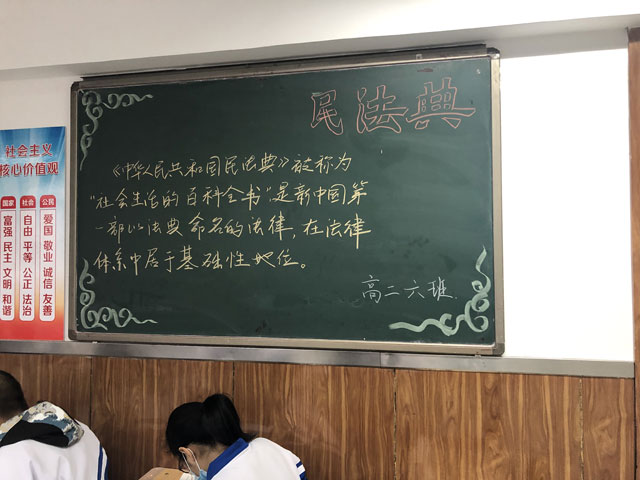 社会主义
核心价值观
国家 社会 公民
富强 民主 文明 和谐
自由 平等 公正 法治
爱国 敬业 诚信 友善
民法典
《中华人民共和国民法典》被称为
“社会生活的百科全书”,是新中国第
一部以法典命名的法律,在法律
体系中居于基础性地位。
高二六班